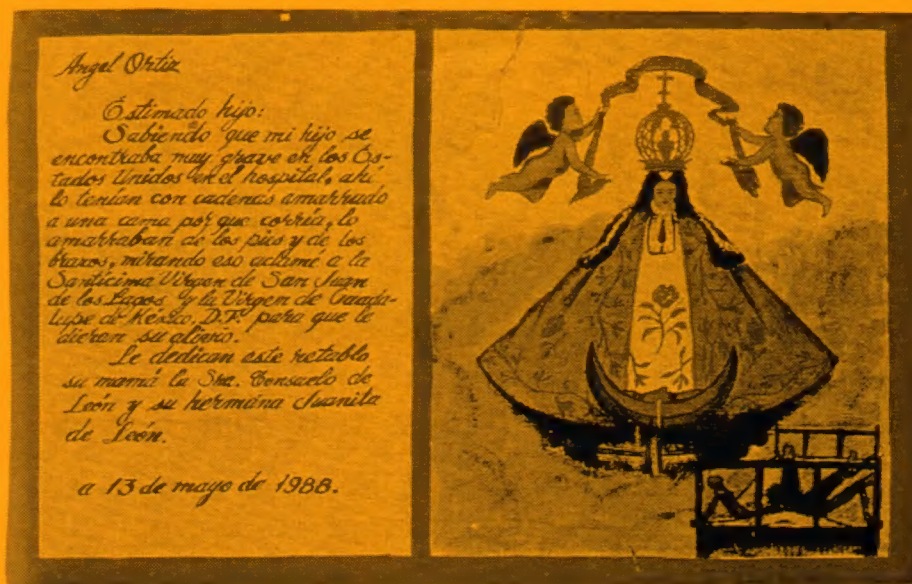 Angel Ortiz
Estimado hijo:
Sabiendo que mi hijo se
encontraba muy grave en los Es-
tados Unidos en el hospital, ahí
lo tenían con cadenas amarrado
a una cama por que corría, lo
amarraban de los pies y de los
brazos, mirando eso aclamé a la
Santícima Virgen de San Juan
de los Lagos y la Virgen de Guada-
lupe de México, D.F. para que le
dieran su alivio.
Le dedican este retablo
su mamá la Sra. Consuelo de
León y su hermana Juanita
de León.
a 13 de mayo de 1988.